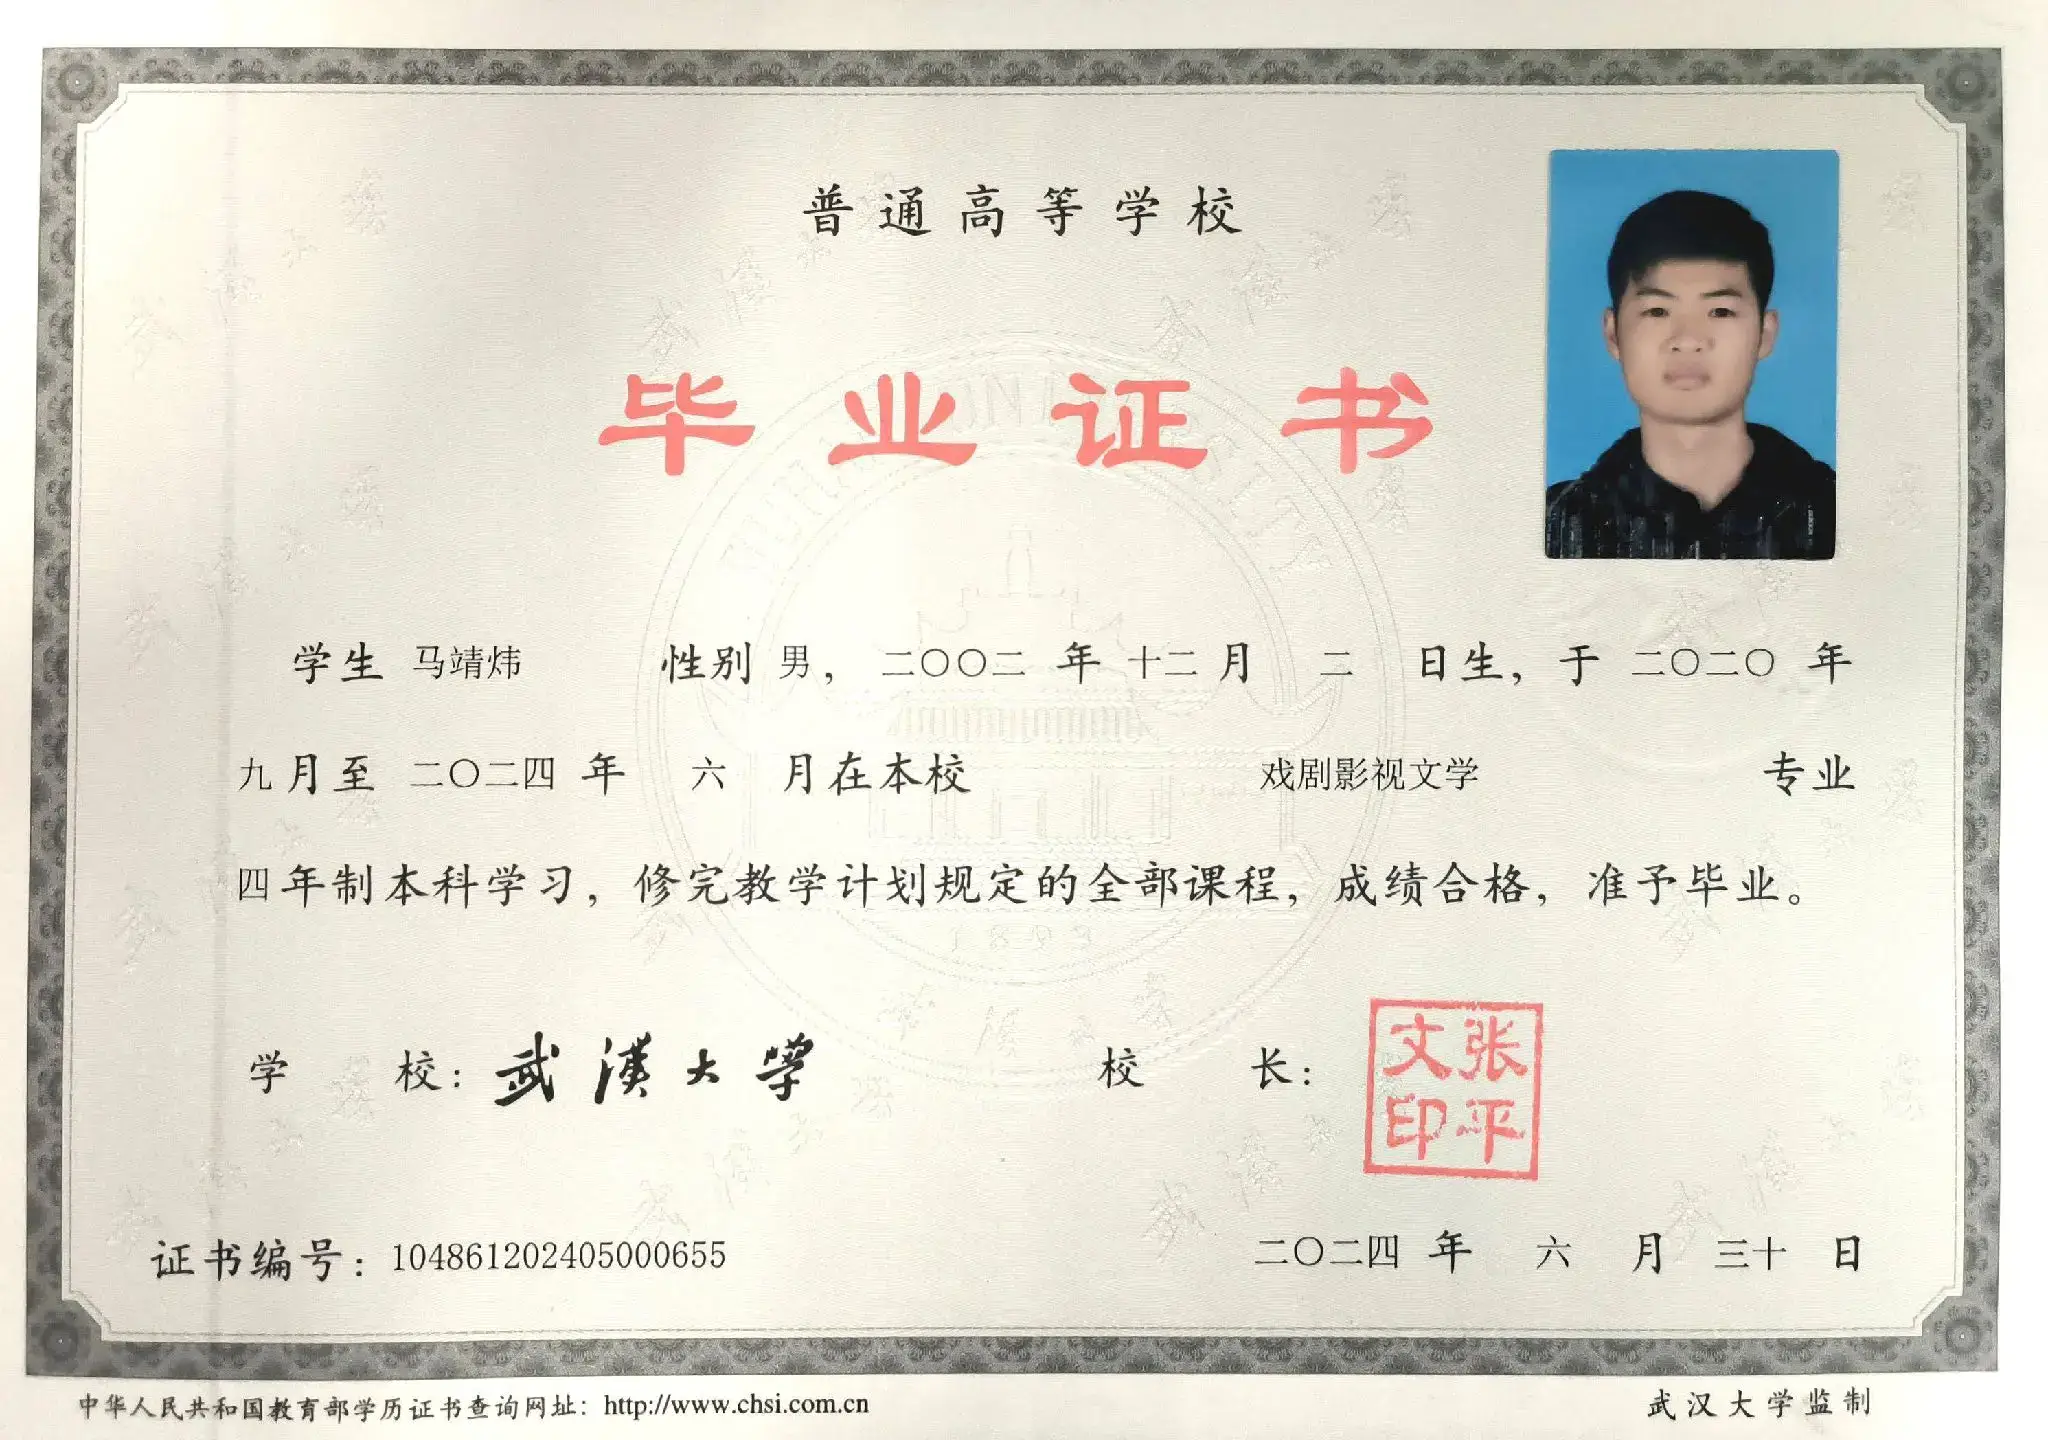 普通高等学校
毕业证书
学生 马靖炜 性别 男，二〇〇二 年 十二 月 二 日生，于 二〇二〇 年
九 月至 二〇二四 年 六 月在本校 戏剧影视文学 专业
四 年制本科学习，修完教学计划规定的全部课程，成绩合格，准予毕业。
学 校：武漢大學 校 长：
张平文印
证书编号：104861202405000655 二〇二四 年 六 月 三十 日
中华人民共和国教育部学历证书查询网址：http://www.chsi.com.cn 武汉大学监制
WUHAN UNIVERSITY
1893